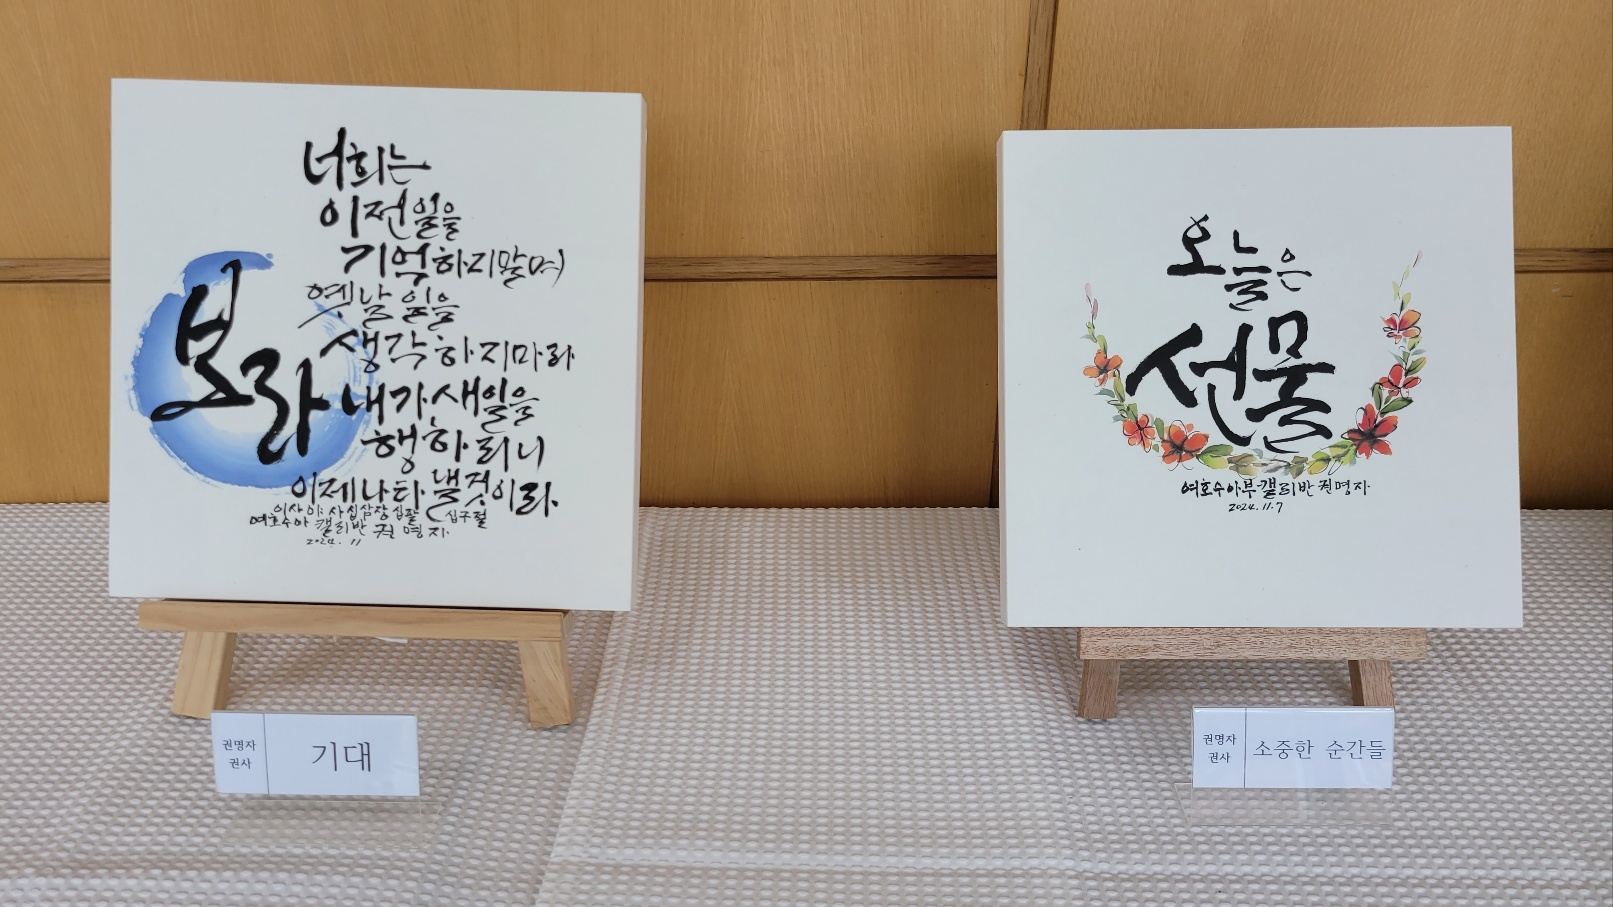 너희는
이전일을
기억하지말며
옛날일을
생각하지마라
보라
내가 새일을
행하리니
이제나타낼것이라
이사야 사십삼장 십팔 십구절
여호수아 캘리반 권명자
2024. 11
권명자
권사
기대
오늘은
선물
여호수아부 캘리반 권명자
2024. 11. 7
권명자
권사
소중한 순간들